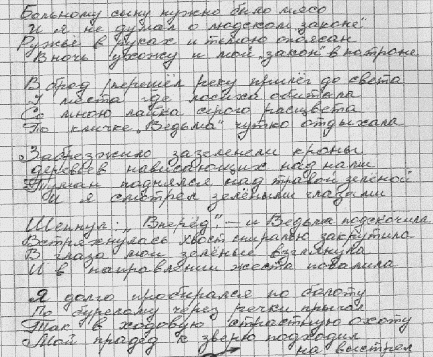 Больному сыну нужно было мясо
И я не думал о людском законе
Ружьё в руках и тьмою опоясан
В ночь ухожу и мой "закон" в патроне
В брод перешёл реку прилёг до света
У места где лосиха обитала
Со мною лайка серого расцвета
По кличке „Ведьма" чутко отдыхала
Забрезжило зазеленели кроны
деревьев нависающих над нами
Туман поднялся над травой зелёной
И я смотрел зелёными глазами
Шепнул: „Вперёд" – и Ведьма подскочила
Встряхнулась хвост спиралью закрутила
В глаза мои зелёные взглянула
И в направлении жеста повалила
Я долго пробирался по болоту
По бурелому через речки прыгал
Так в ходовую страстную охоту
Мой прадед к зверю подходил
на выстрел